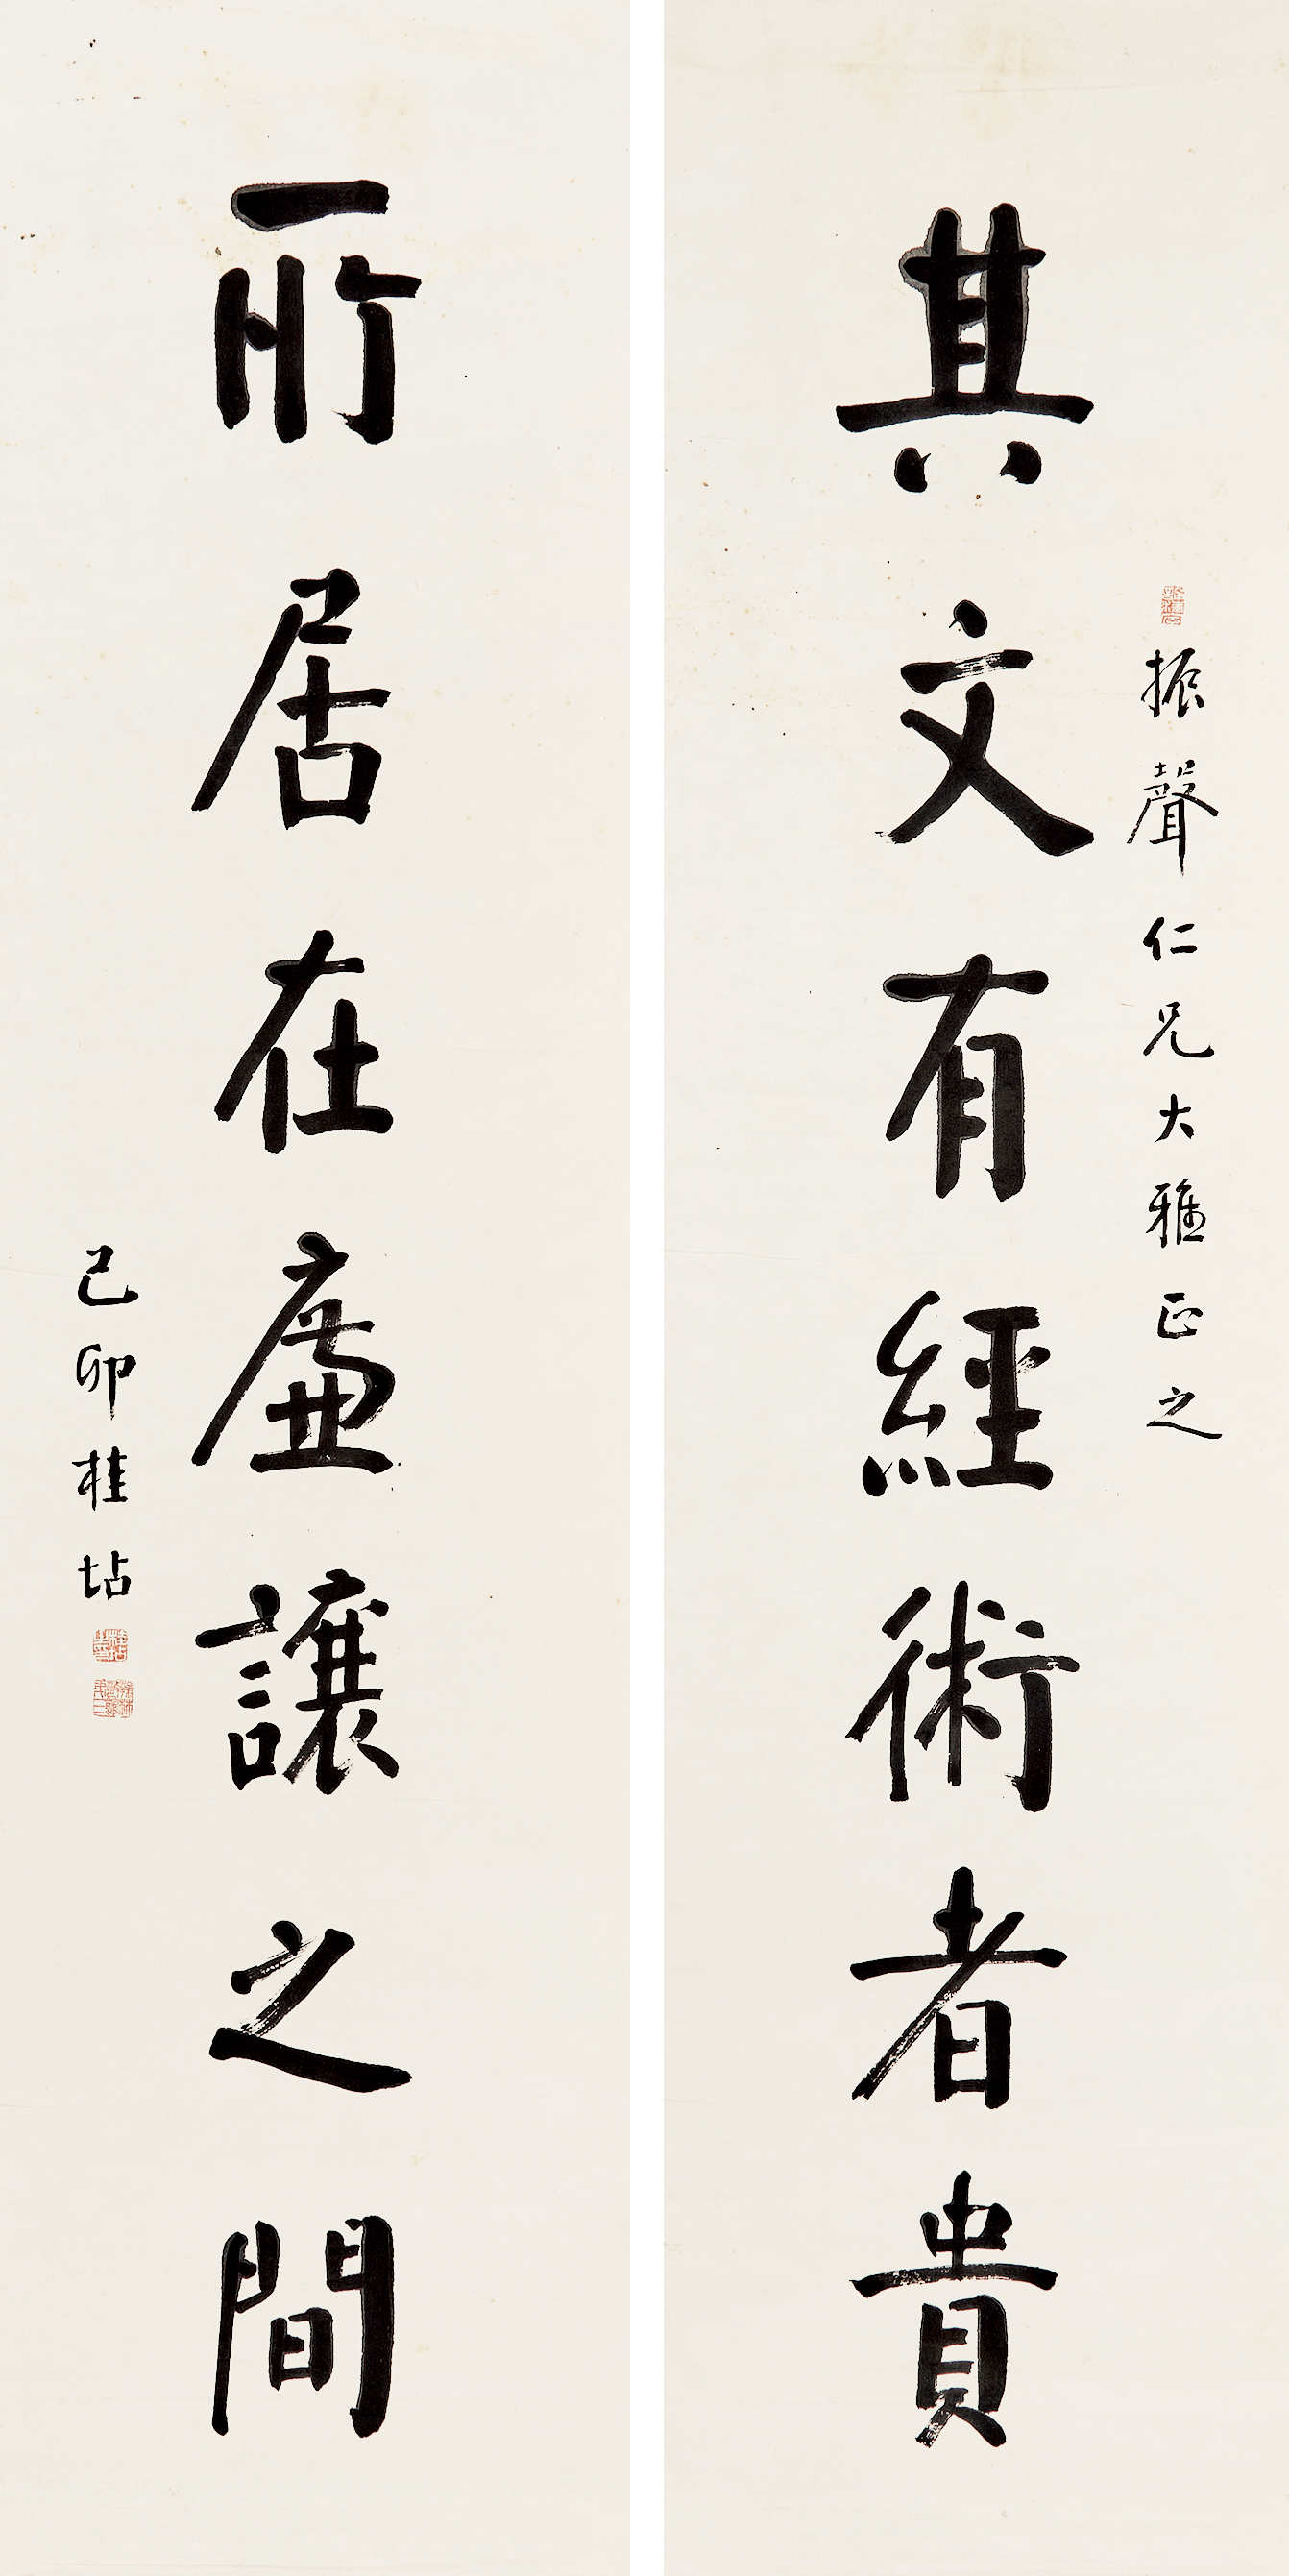 振聲仁兄大雅正之
其文有經術者貴
所居在廉讓之間
己卯桂坫